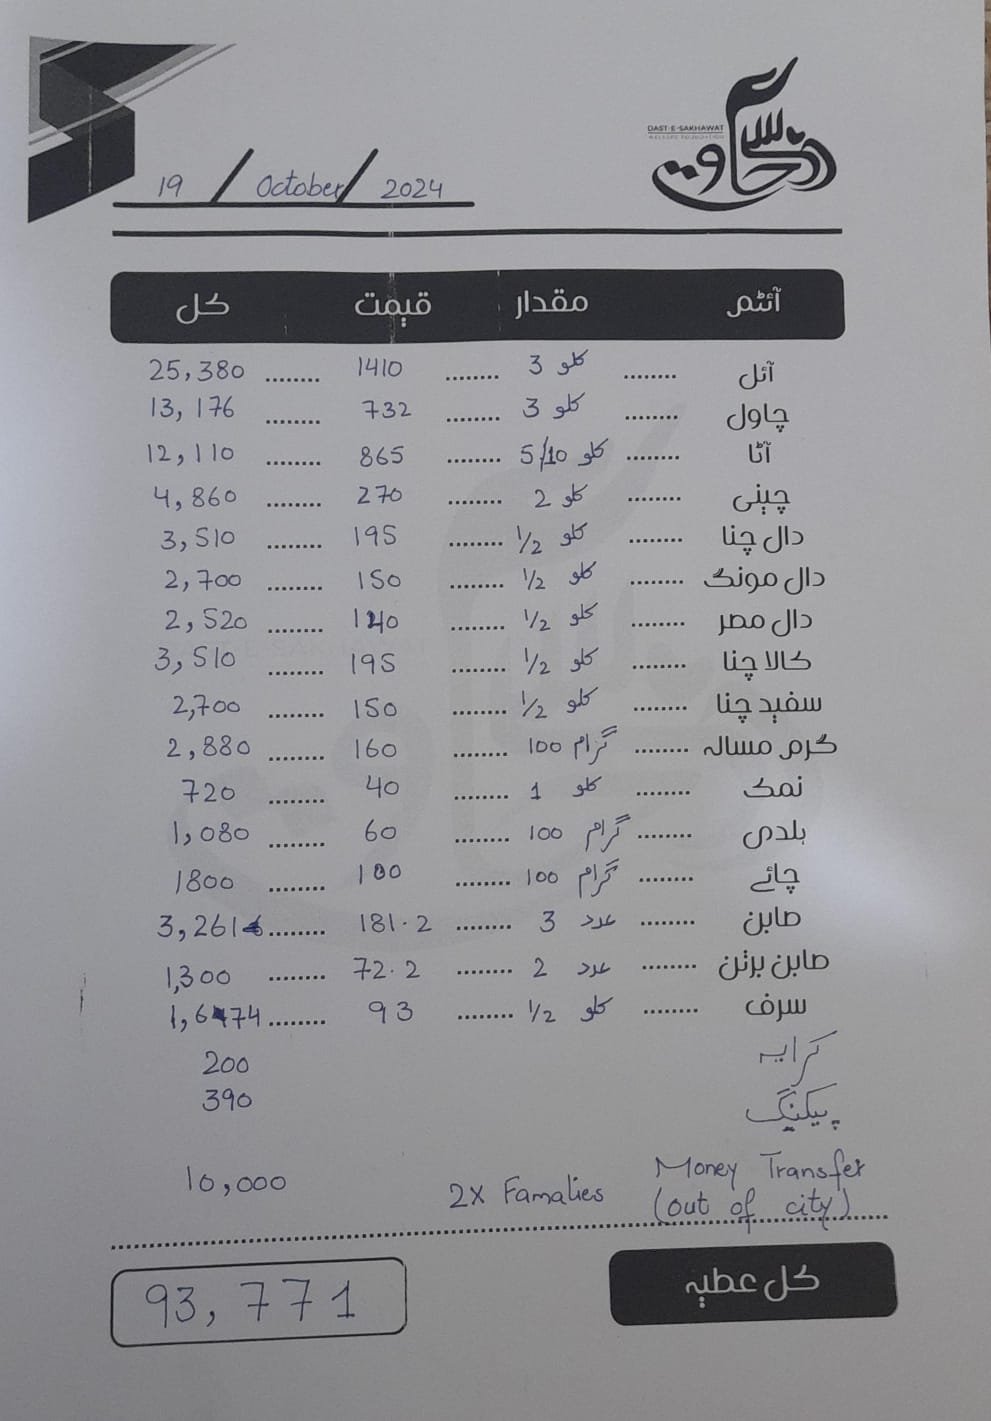 DAST-E-SAKHAWAT
WELFARE FOUNDATION
دست سخاوت
19 / October / 2024
آئٹم مقدار قیمت کل
آئل ........ 3 کلو ........ 1410 ........ 25,380
چاول ........ 3 کلو ........ 732 ........ 13,176
آٹا ........ 5/10 کلو ........ 865 ........ 12,110
چینی ........ 2 کلو ........ 270 ........ 4,860
دال چنا ........ 1/2 کلو ........ 195 ........ 3,510
دال مونگ ........ 1/2 کلو ........ 150 ........ 2,700
دال مصر ........ 1/2 کلو ........ 140 ........ 2,520
کالا چنا ........ 1/2 کلو ........ 195 ........ 3,510
سفید چنا ........ 1/2 کلو ........ 150 ........ 2,700
گرم مسالہ ........ 100 گرام ........ 160 ........ 2,880
نمک ........ 1 کلو ........ 40 ........ 720
ہلدی ........ 100 گرام ........ 60 ........ 1,080
چائے ........ 100 گرام ........ 100 ........ 1800
صابن ........ 3 عدد ........ 181.2 ........ 3,261
صابن برتن ........ 2 عدد ........ 72.2 ........ 1,300
سرف ........ 1/2 کلو ........ 93 ........ 1,674
کرایہ 200
پیکنگ 390
Money Transfer (out of city) 2x Famalies 10,000
کل عطیہ 93,771